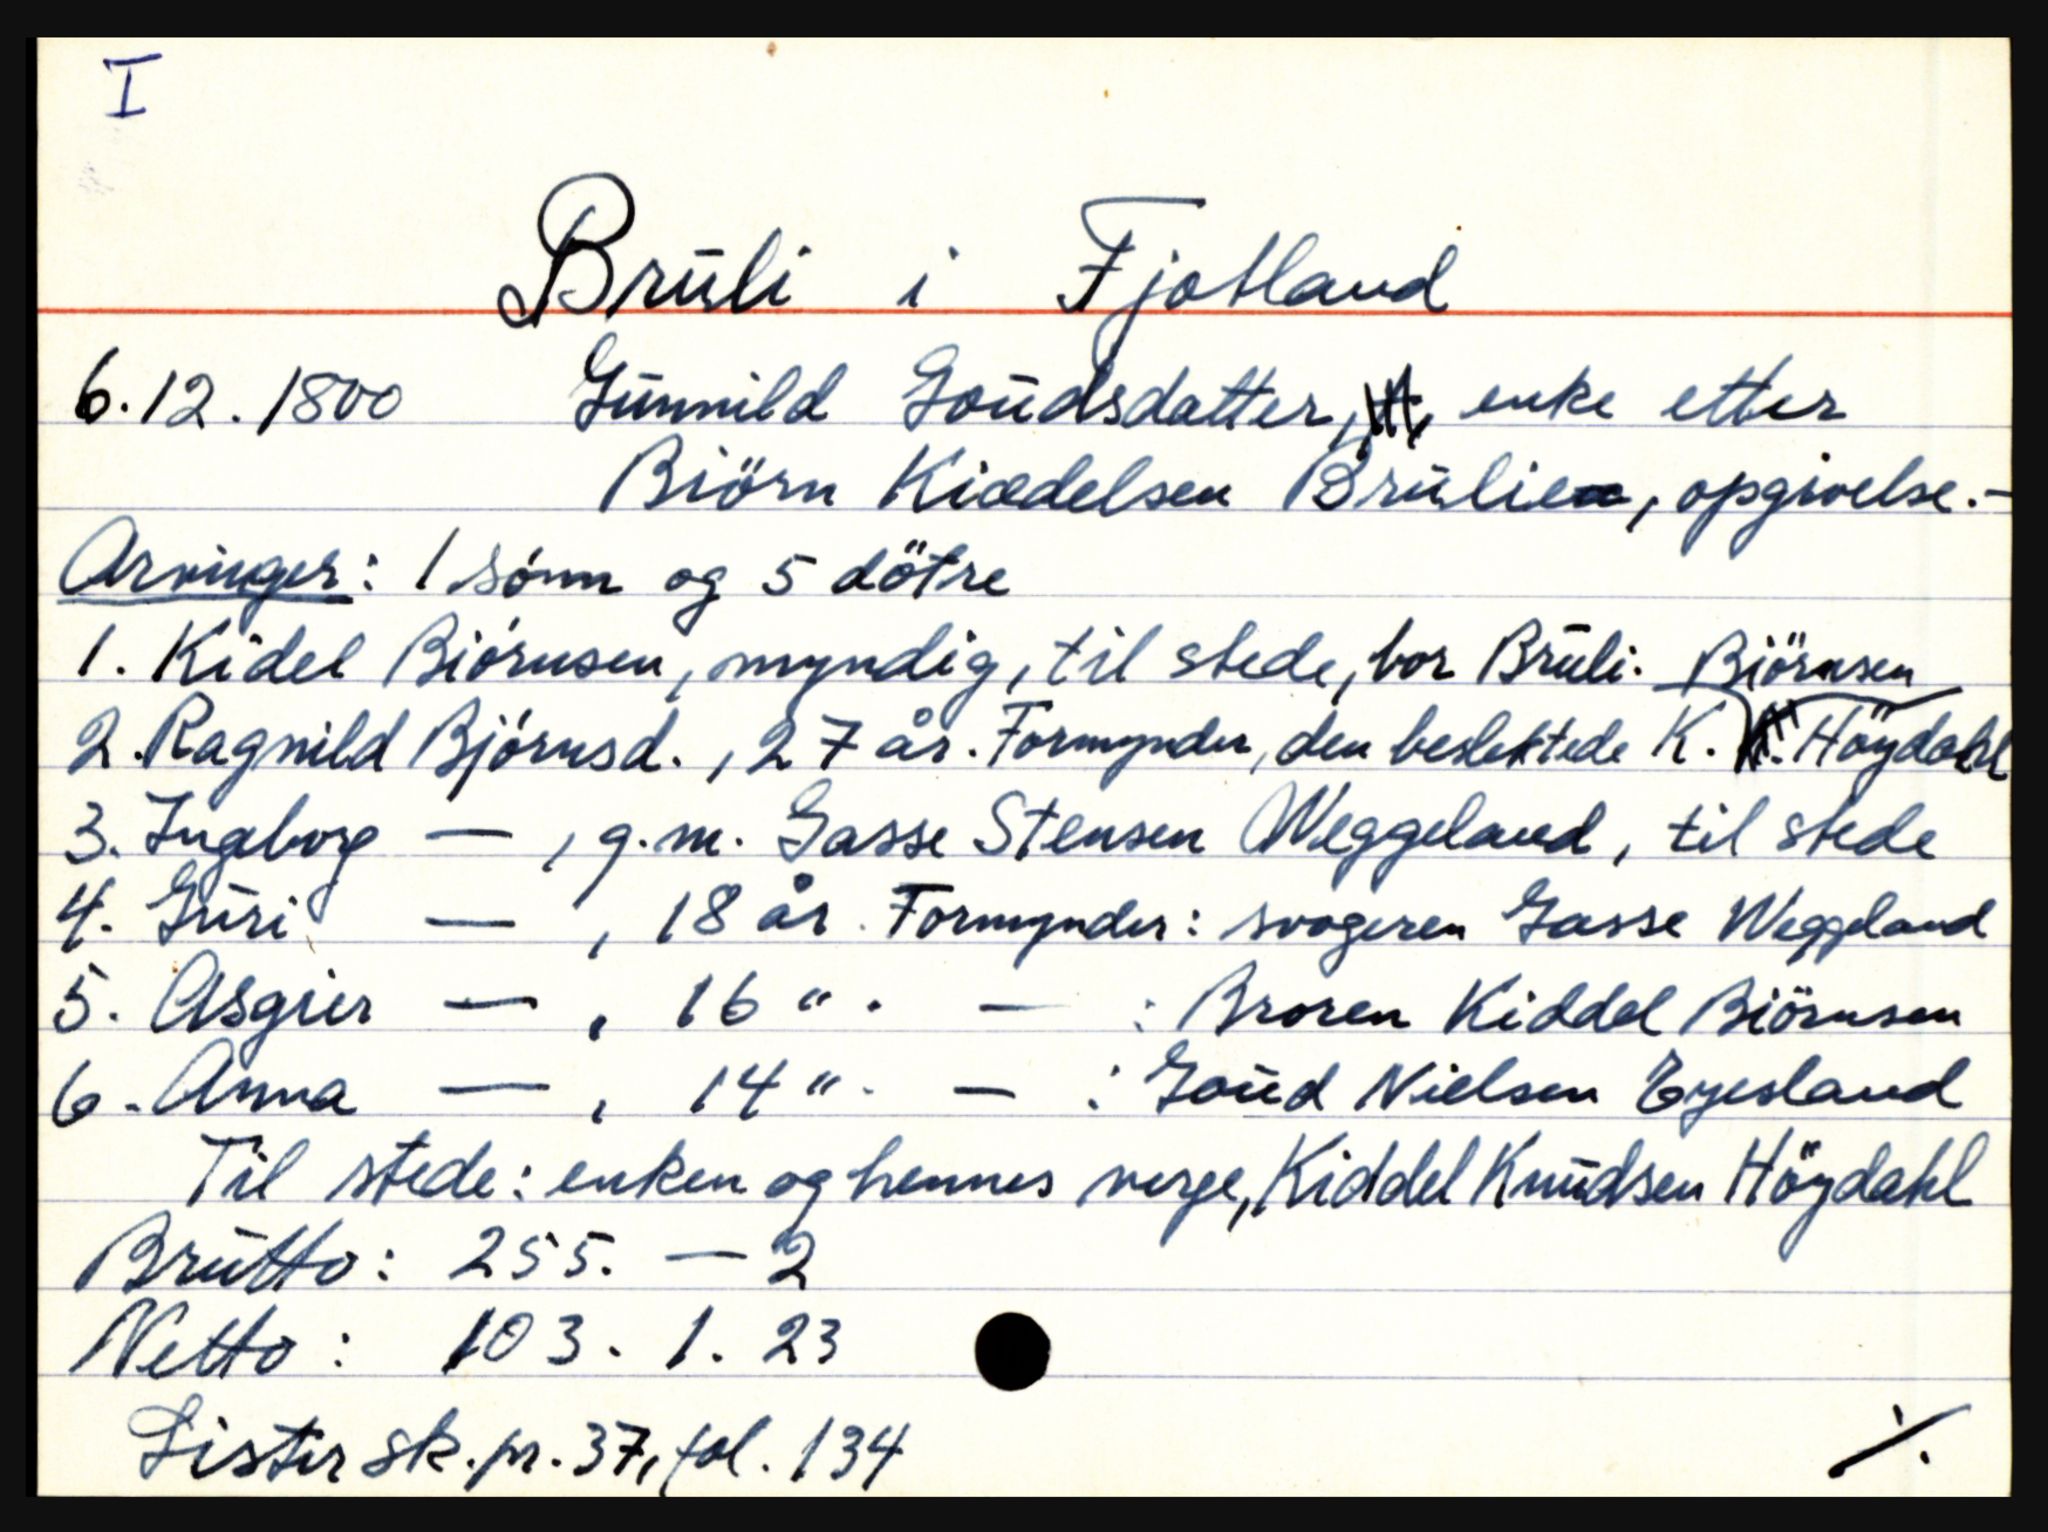 I
Bruli i Fjotland
6.12.1800 Gunnild Goudsdatter, enke etter
Biörn Kiædelsen Brulie, opgivelse.-
Arvinger: 1 sónn og 5 dötre
1. Kidel Biórnsen, myndig, til stede, bor Bruli. Biörnsen
2. Ragnild Bjórnsd., 27 år. Formynder, den beslektede K. Höydahl
3. Ingeborg — , g.m. Gasse Stensen Weggeland, til stede
4. Guri — , 18 år. Formynder: svogeren Gasse Weggeland
5. Asgier — , 16 ". — : Broren Kiddel Biörnsen
6. Anna — , 14 ". — : Goud Nielsen Eyesland
Til stede: enken og hennes verge, Kiddel Knudsen Höydahl
Brutto: 255. — 2
Netto: 103. 1. 23
Lister sk.pr. 37, fol. 134
./.